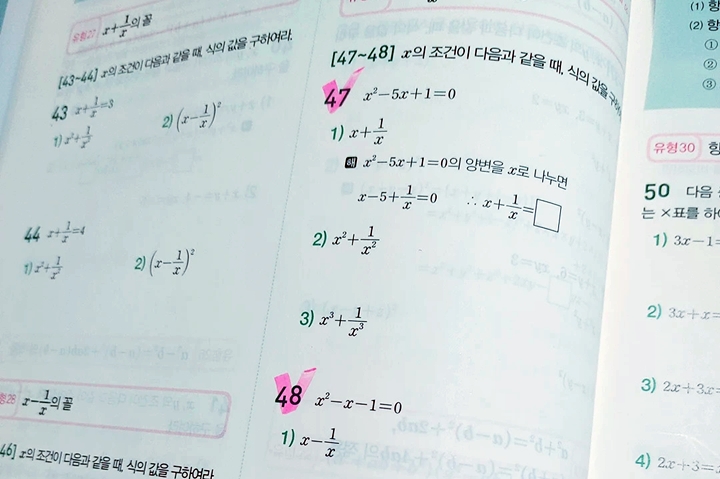 유형27 x+1/x의 꼴
[43~44] x의 조건이 다음과 같을 때, 식의 값을 구하여라.
43 x+1/x=3
1) x²+1/x²
2) (x-1/x)²
44 x+1/x=4
1) x²+1/x²
2) (x-1/x)²
형28 x-1/x의 꼴
46] x의 조건이 다음과 같을 때, 식의 값을 구하여라.
[47~48] x의 조건이 다음과 같을 때, 식의 값을 구하
47 x²-5x+1=0
1) x+1/x
해 x²-5x+1=0의 양변을 x로 나누면
x-5+1/x=0 ∴ x+1/x=□
2) x²+1/x²
3) x³+1/x³
48 x²-x-1=0
1) x-1/x
(1) 항
(2) 항
①
②
③
유형30 항
50 다음
는 ×표를 하
1) 3x-1=
2) 3x+x=
3) 2x+3x=
4) 2x+3=